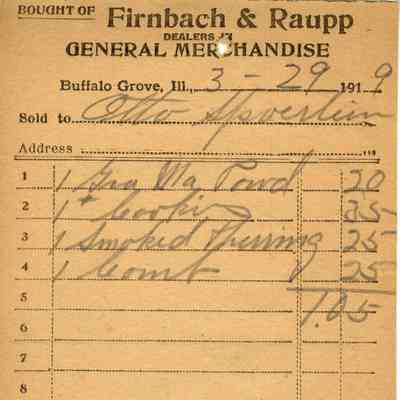 BOUGHT OF Firnbach & Raupp
DEALERS IN
GENERAL MERCHANDISE
Buffalo Grove, Ill., 3-29 1919
Sold to Otto
Address
1 1 Gra Ma Powd 20
2 1 Cookies 35
3 1 Smoked Herring 25
4 1 Comb 25
5 1.05
6
7
8